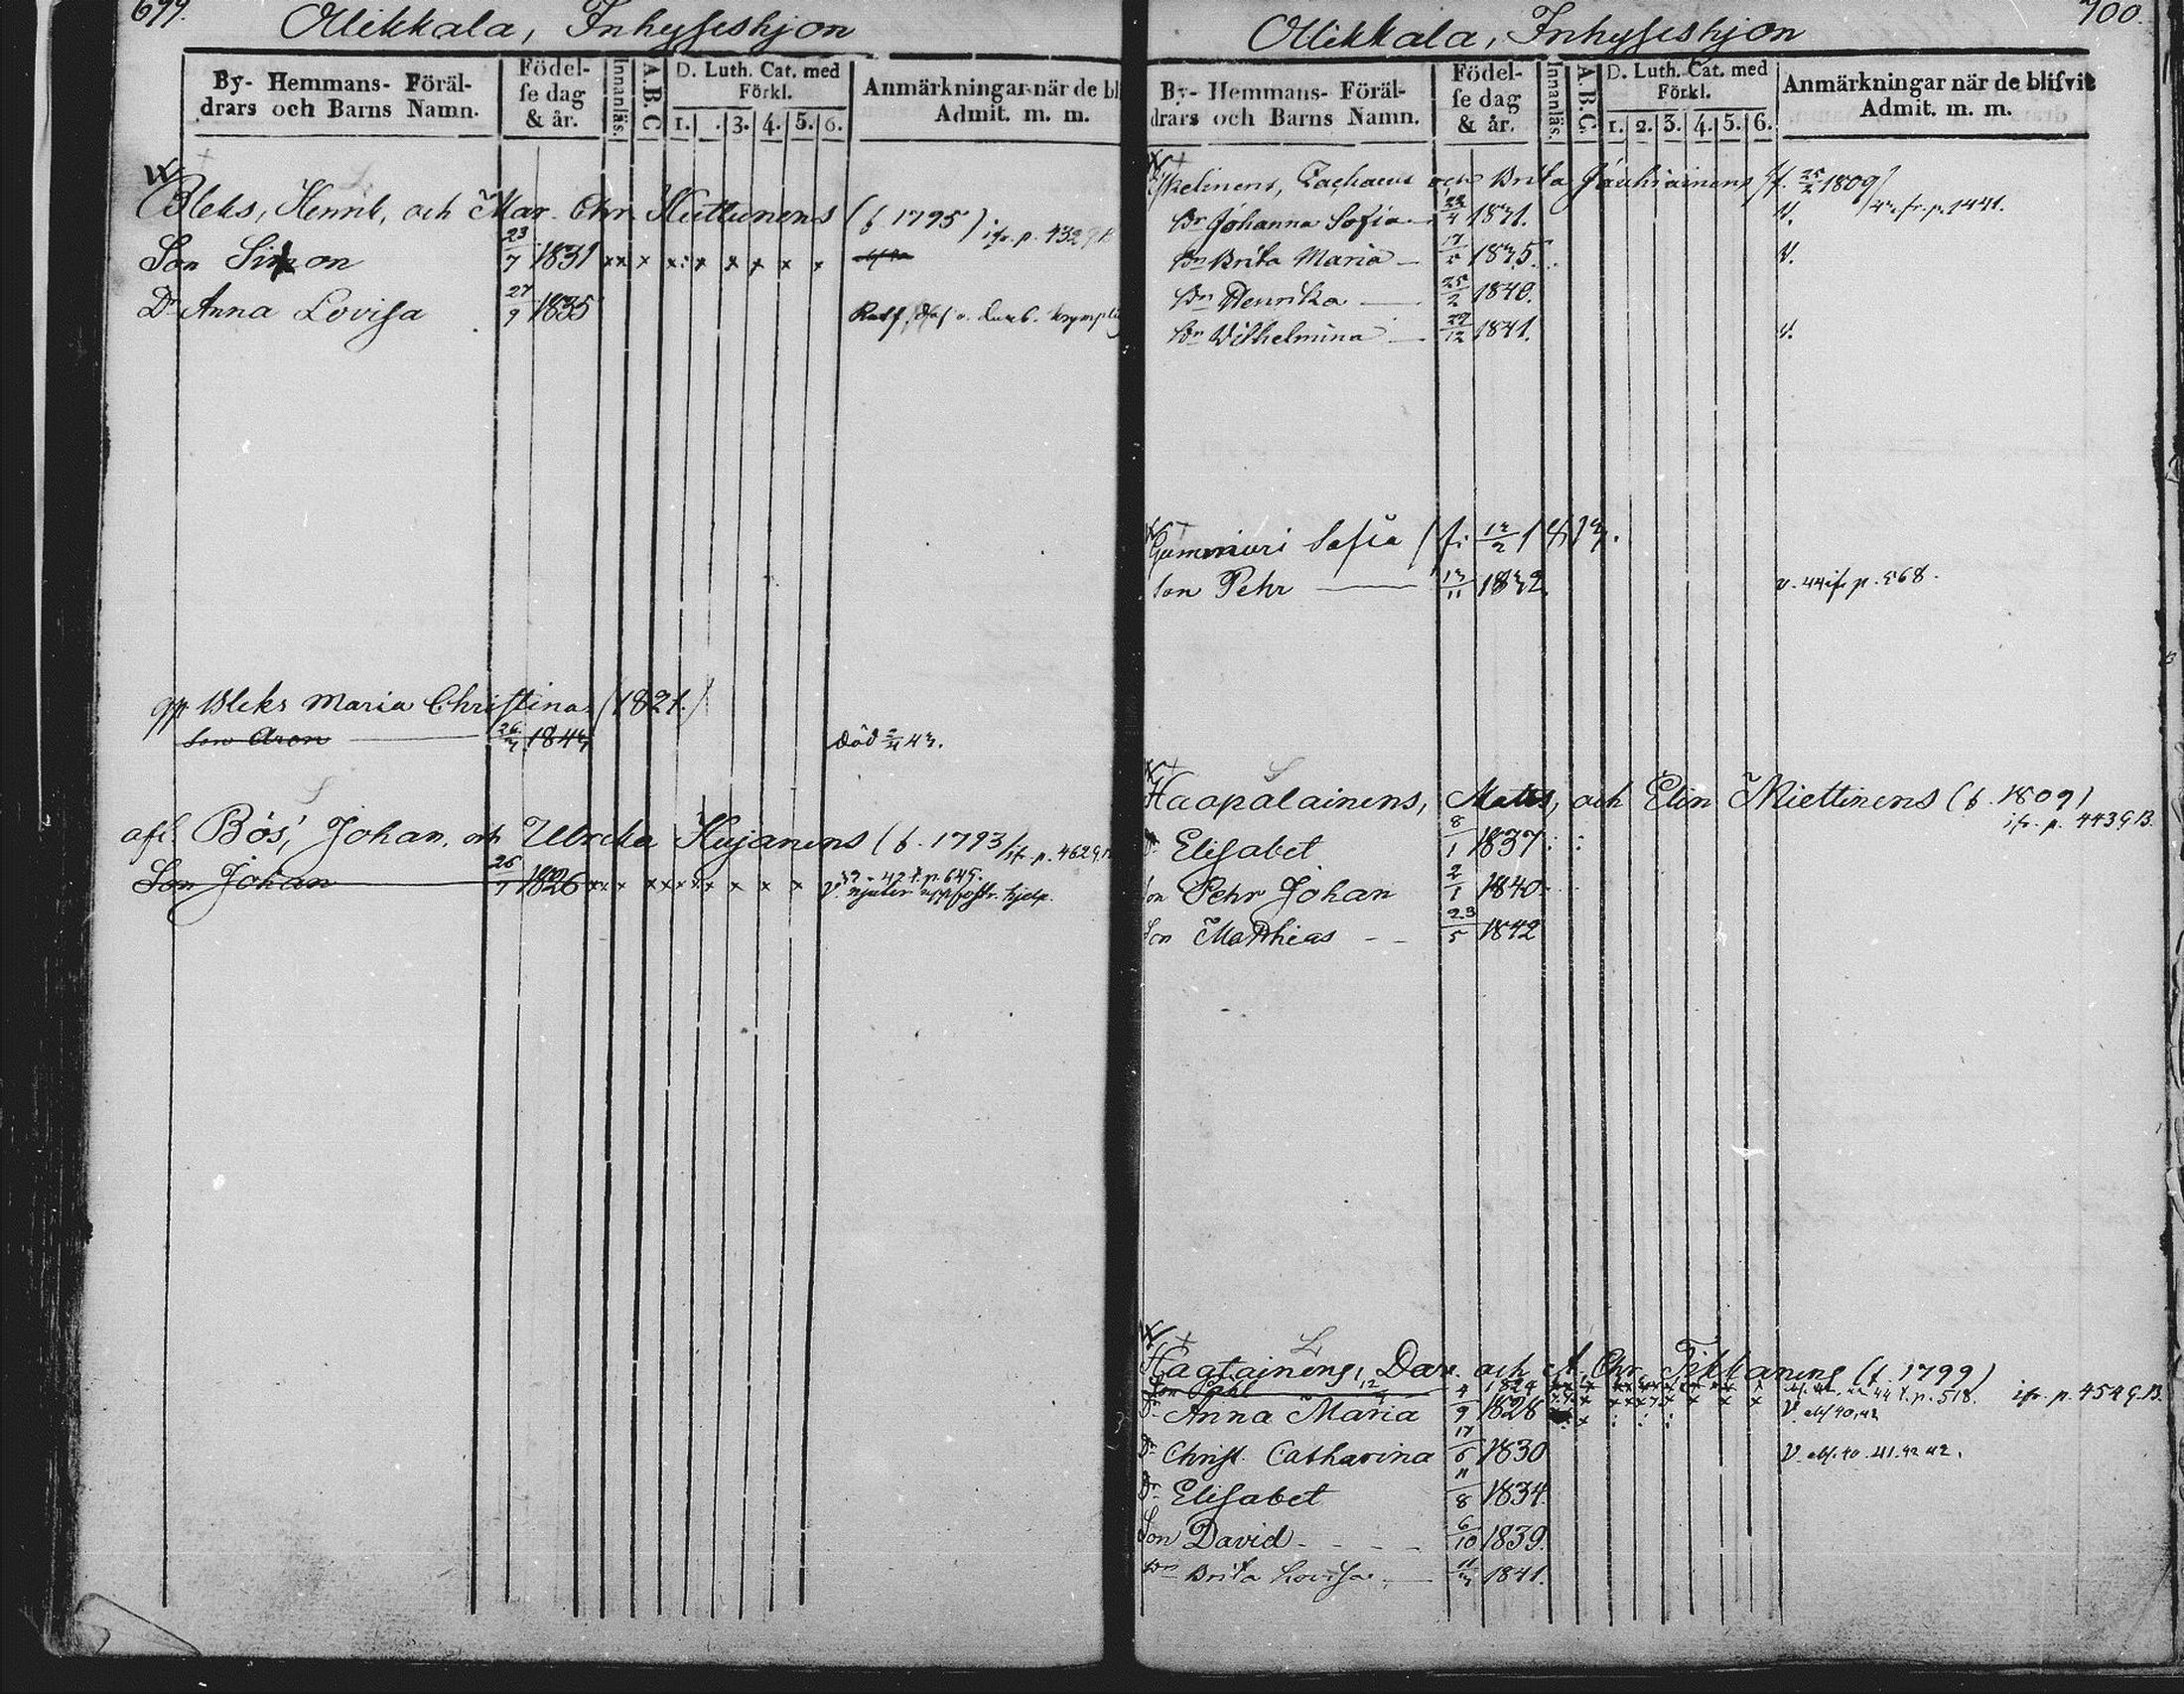 699.
Mikkala, Inhyseshjon
By- Hemmans- Föräl-
drars och Barns Namn.
Födel-
se dag
& år.
Innanläs.
A.B.C
D. Luth. Cat. med
Förkl.
1. . 3. 4. 5. 6.
Anmärkningar när de bl
Admit. m. m.
Bleks, Henrik, och Mar. Chr. Huttunens (f. 1795) ifr. p. 432 G.B
Son Simon 23/7 1831 xx x x x x x x x
Dr Anna Lovisa 27/9 1835
Bleks Maria Christina (1821.)
Son Aron 1843 död 43.
afl. Bös, Johan, och Ulrika Hujanens (f. 1793) ifr. p. 462 G.B
Son Johan 26/7 1826 V. njuter uppfostr. hjelp.
700.
Mikkala, Inhyseshjon
By- Hemmans- Föräl-
drars och Barns Namn.
Födel-
se dag
& år.
Innanläs.
A.B.C.
D. Luth. Cat. med
Förkl.
1. 2. 3. 4. 5. 6.
Anmärkningar när de blifvit
Admit. m. m.
Zachaeus och Brita Jauhiainens /f. 25/2 1809/
Dr Johanna Sofia V.
Dr Brita Maria 17/5 1835 V.
Dr Henrika 25/2 1840.
Dr Wilhelmina 27/12 1841. V.
Gummeri Sofia
Son Pehr 13/11 1832 p. 568.
Haapalainens, Matts, och Elin Miettinens (f. 1809)
ifr. p. 443 G.B.
Dr Elisabet 8/1 1837
Son Pehr Johan 2/1 1840
Son Matthias 23/5 1842
Dav. och A. Chr. (f. 1799)
Son 12/4 1824 44 t. p. 518. ifr. p. 454 G.B.
Dr Anna Maria 4/9 1828 V.
Dr Christ. Catharina 17/6 1830 V. 40. 41. 42
Dr Elisabet 11/8 1834.
Son David 6/10 1839.
Dr Brita Lovisa 11/3 1841.